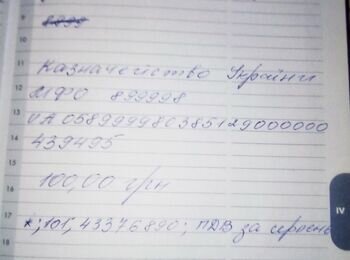 9
10
11 Казначейство України
12 МФО 899998
13 UA058999980385129000000
14 439495
15
16 100,00 грн
17 *;101; 43376890; ПДВ за
18
IV